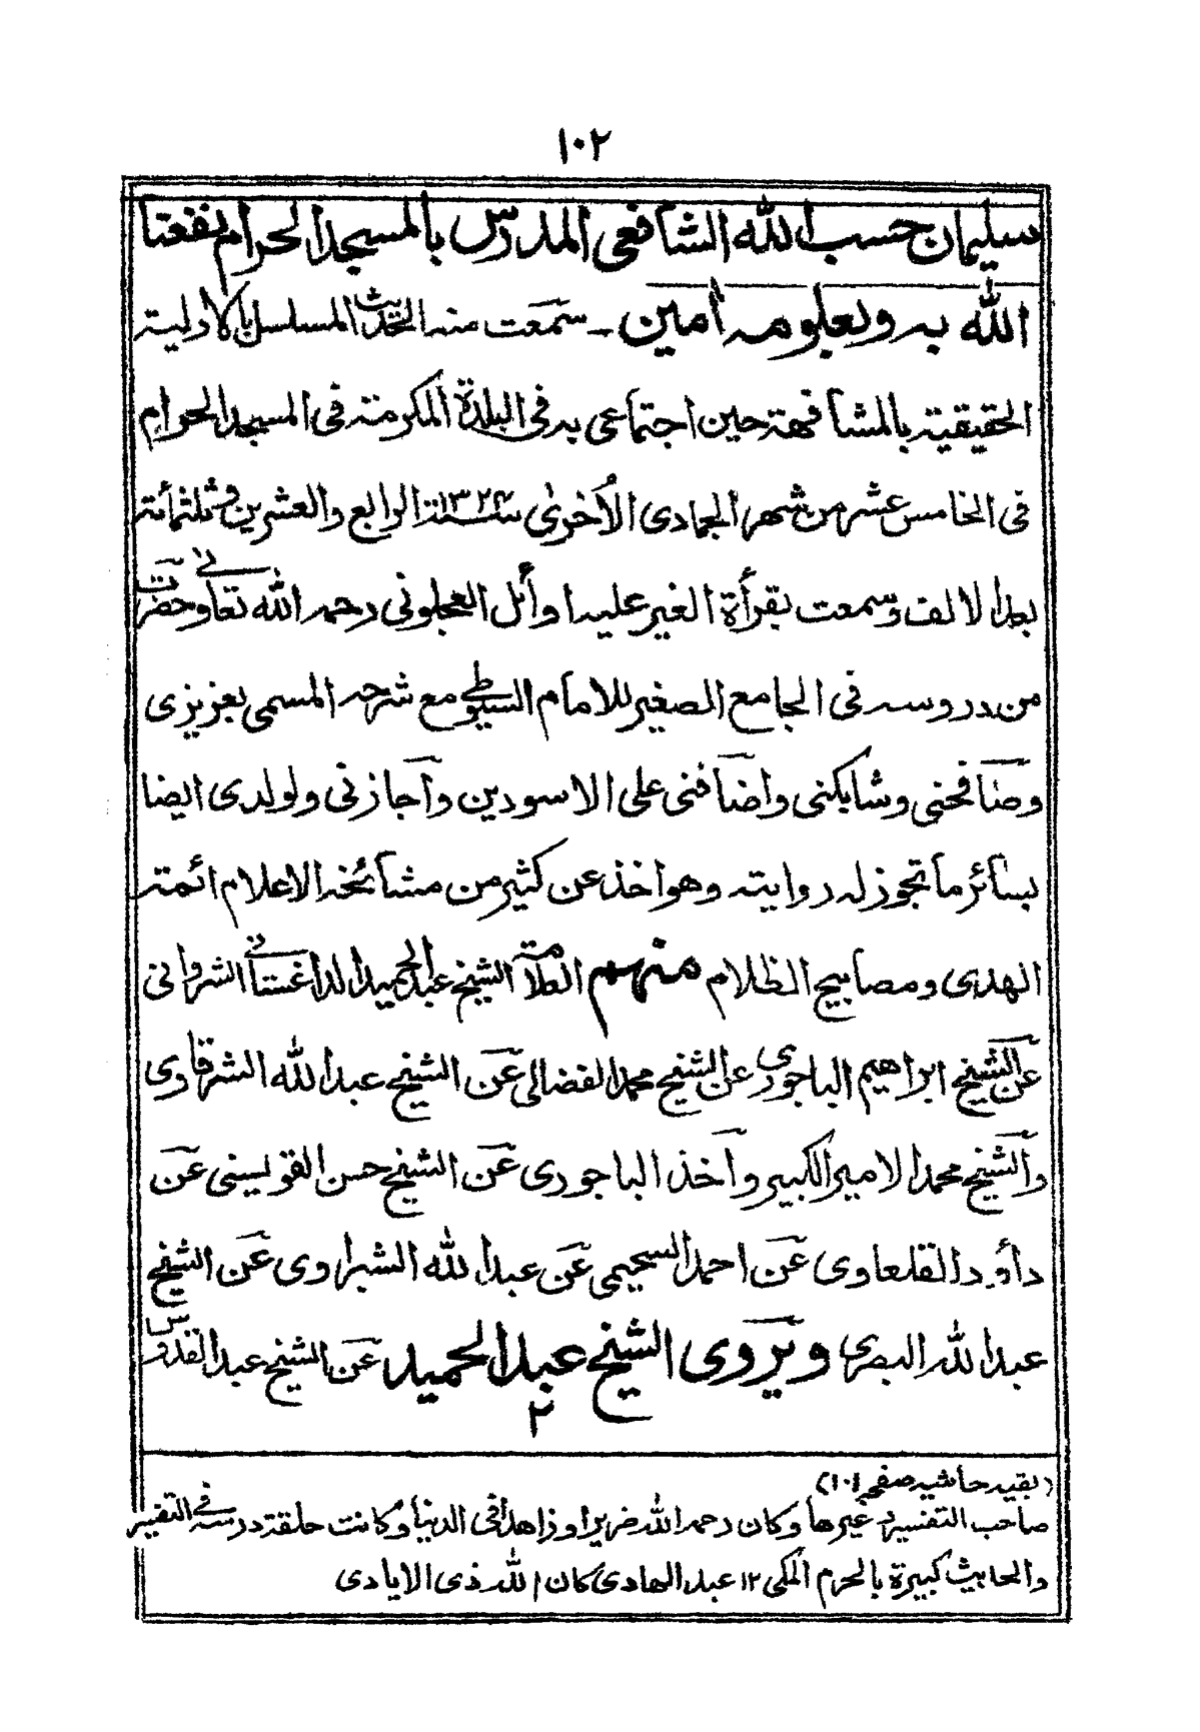 ١٠٢
سليمان حسب الله الشافعى المدرّس بالمسجد الحرام نفعنا
الله به وبعلومه اٰمين ـ سمعت منه الحديث المسلسل بالاولية
الحقيقية بالمشافهة حين اجتماعى به فى البلدة المكرمة فى المسجد الحرام
فى الخامس عشر من شهر الجمادى الأخرىٰ سنة ١٣٢٤ الرابع والعشرين وثلثمائة
بعد الالف وسمعت بقرأة الغير عليه اوائل العجلونى رحمه الله تعالىٰ وحضرت
من دروسه فى الجامع الصغير للامام السيوطى مع شرحه المسمى بعزيزى
وصافحنى وشابكنى واضافنى على الاسودين واجازنى ولولدى ايضا
بسائر ما تجوز له روايته وهو اخذ عن كثير من مشائخه الاعلام ائمة
الهدى ومصابيح الظلام منهم العلامة الشيخ عبد الحميد الداغستانى الشروانى
عن الشيخ ابراهيم الباجورى عن الشيخ محمد الفضالى عن الشيخ عبد الله الشرقاوى
والشيخ محمد الامير الكبير واخذ الباجورى عن الشيخ حسن القويسنى عن
داؤد القلعاوى عن احمد السحيمى عن عبد الله الشبراوى عن الشيخ
عبد الله البصرى ويروى الشيخ عبد الحميد عن الشيخ عبد القدوس
٢
(بقيه حاشيه صفحه ١٠١)
صاحب التفسير وغيرها وكان رحمه الله ضريرا وزاهدا فى الدنيا وكانت حلقة درسه فى التفسير
والحديث كبيرة بالحرم المكى ١٢ عبد الهادى كان الله ذى الايادى